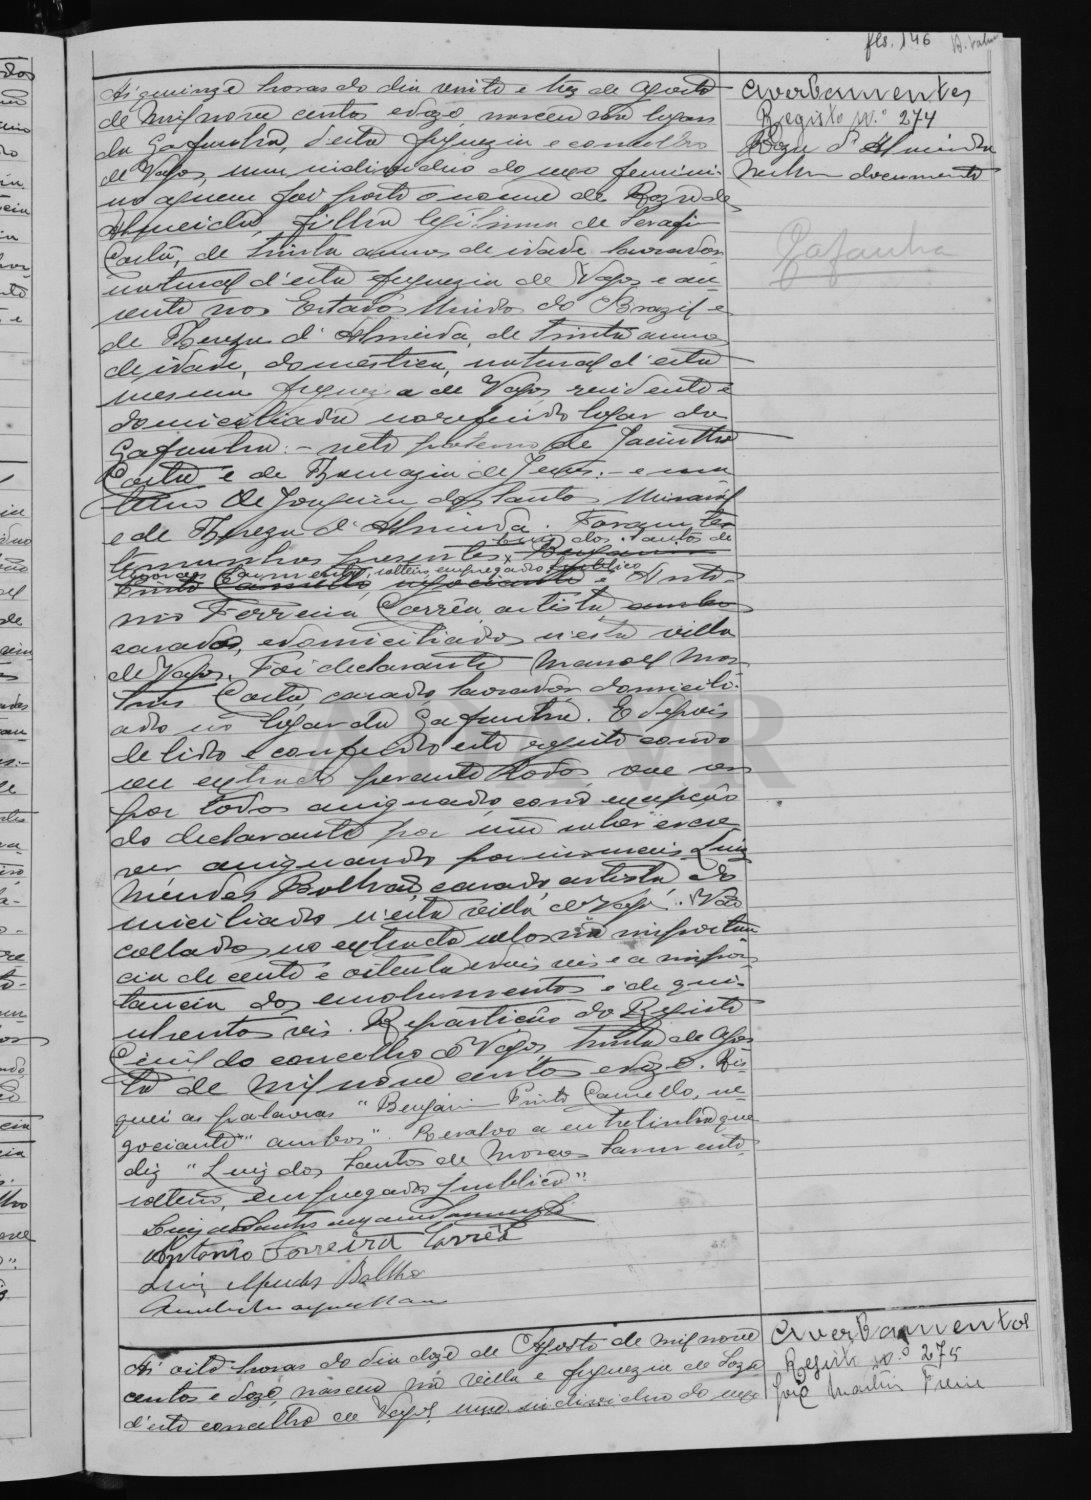 fls. 146
Ás quinze horas do dia vinte e trez de Agosto
de mil nove centos e doze, nasceu no lugar
da Gafanha, d'esta freguezia e concelho
de Vagos, um individuo do sexo femini-
no a quem foi posto o nome de Roza de
Almeida, filha legitima de Serafi
Costa, de trinta annos de idade lavrador
natural d'esta freguezia de Vagos e au-
sente nos Estados Unidos do Brazil e
de Thereza d'Almeida, de trinta annos
de idade, domestica, natural d'esta
mesma freguezia de Vagos residente e
domiciliada no referido logar da
Gafanha: - neta paterna de Jacintho
Costa e de Thomazia de Jesus: - e ma
terna de Joaquim dos Santos
e de Thereza d'Almeida. Foram tes
temunhas presentes, Luiz dos Santos de
Moraes Sarmento, solteiro, empregado publico
Pinto Camello, negociante e Anto-
nio Ferreira Corrêa, artista, ambos
casados, e domiciliados n'esta villa
de Vagos. Foi declarante Manoel
Costa, casado, lavrador domicili-
ado no logar da Gafanha. E depois
de lido e conferido este registo com o
seu extracto perante todos, vae ser
por todos assignado, com excepção
do declarante por não saber escre
ver assignando por Luiz
Mendes Bolhão, casado, artista do
miciliado n'esta villa de Vagos. Vão
collados no extracto sellos na importan
cia de cento e oitenta e dois reis e a impor-
tancia dos emolumentos é de qui-
nhentos reis. Repartição do Registo
Civil do concelho de Vagos, trinta de Agos
to de mil nove centos e doze. Ris-
quei as palavras "Benjamin Pinto Camello, ne-
gociante" "ambos". Resalvo a entrelinha que
diz "Luiz dos Santos de Moraes Sarmento,
solteiro, empregado publico".
Luiz dos Santos Moraes Sarmento
Antonio Ferreira Corrêa
Luiz Mendes Bolhão
Averbamentos
Registo n.º 274
Roza d'Almeida
Nenhum documento
Gafanha
Ás oito horas do dia doze de Agosto de mil nove
centos e doze, nasceu na villa e freguezia de Soza
d'este concelho de Vagos, um individuo do sexo
Averbamentos
Registo n.º 275
José Martins Freire